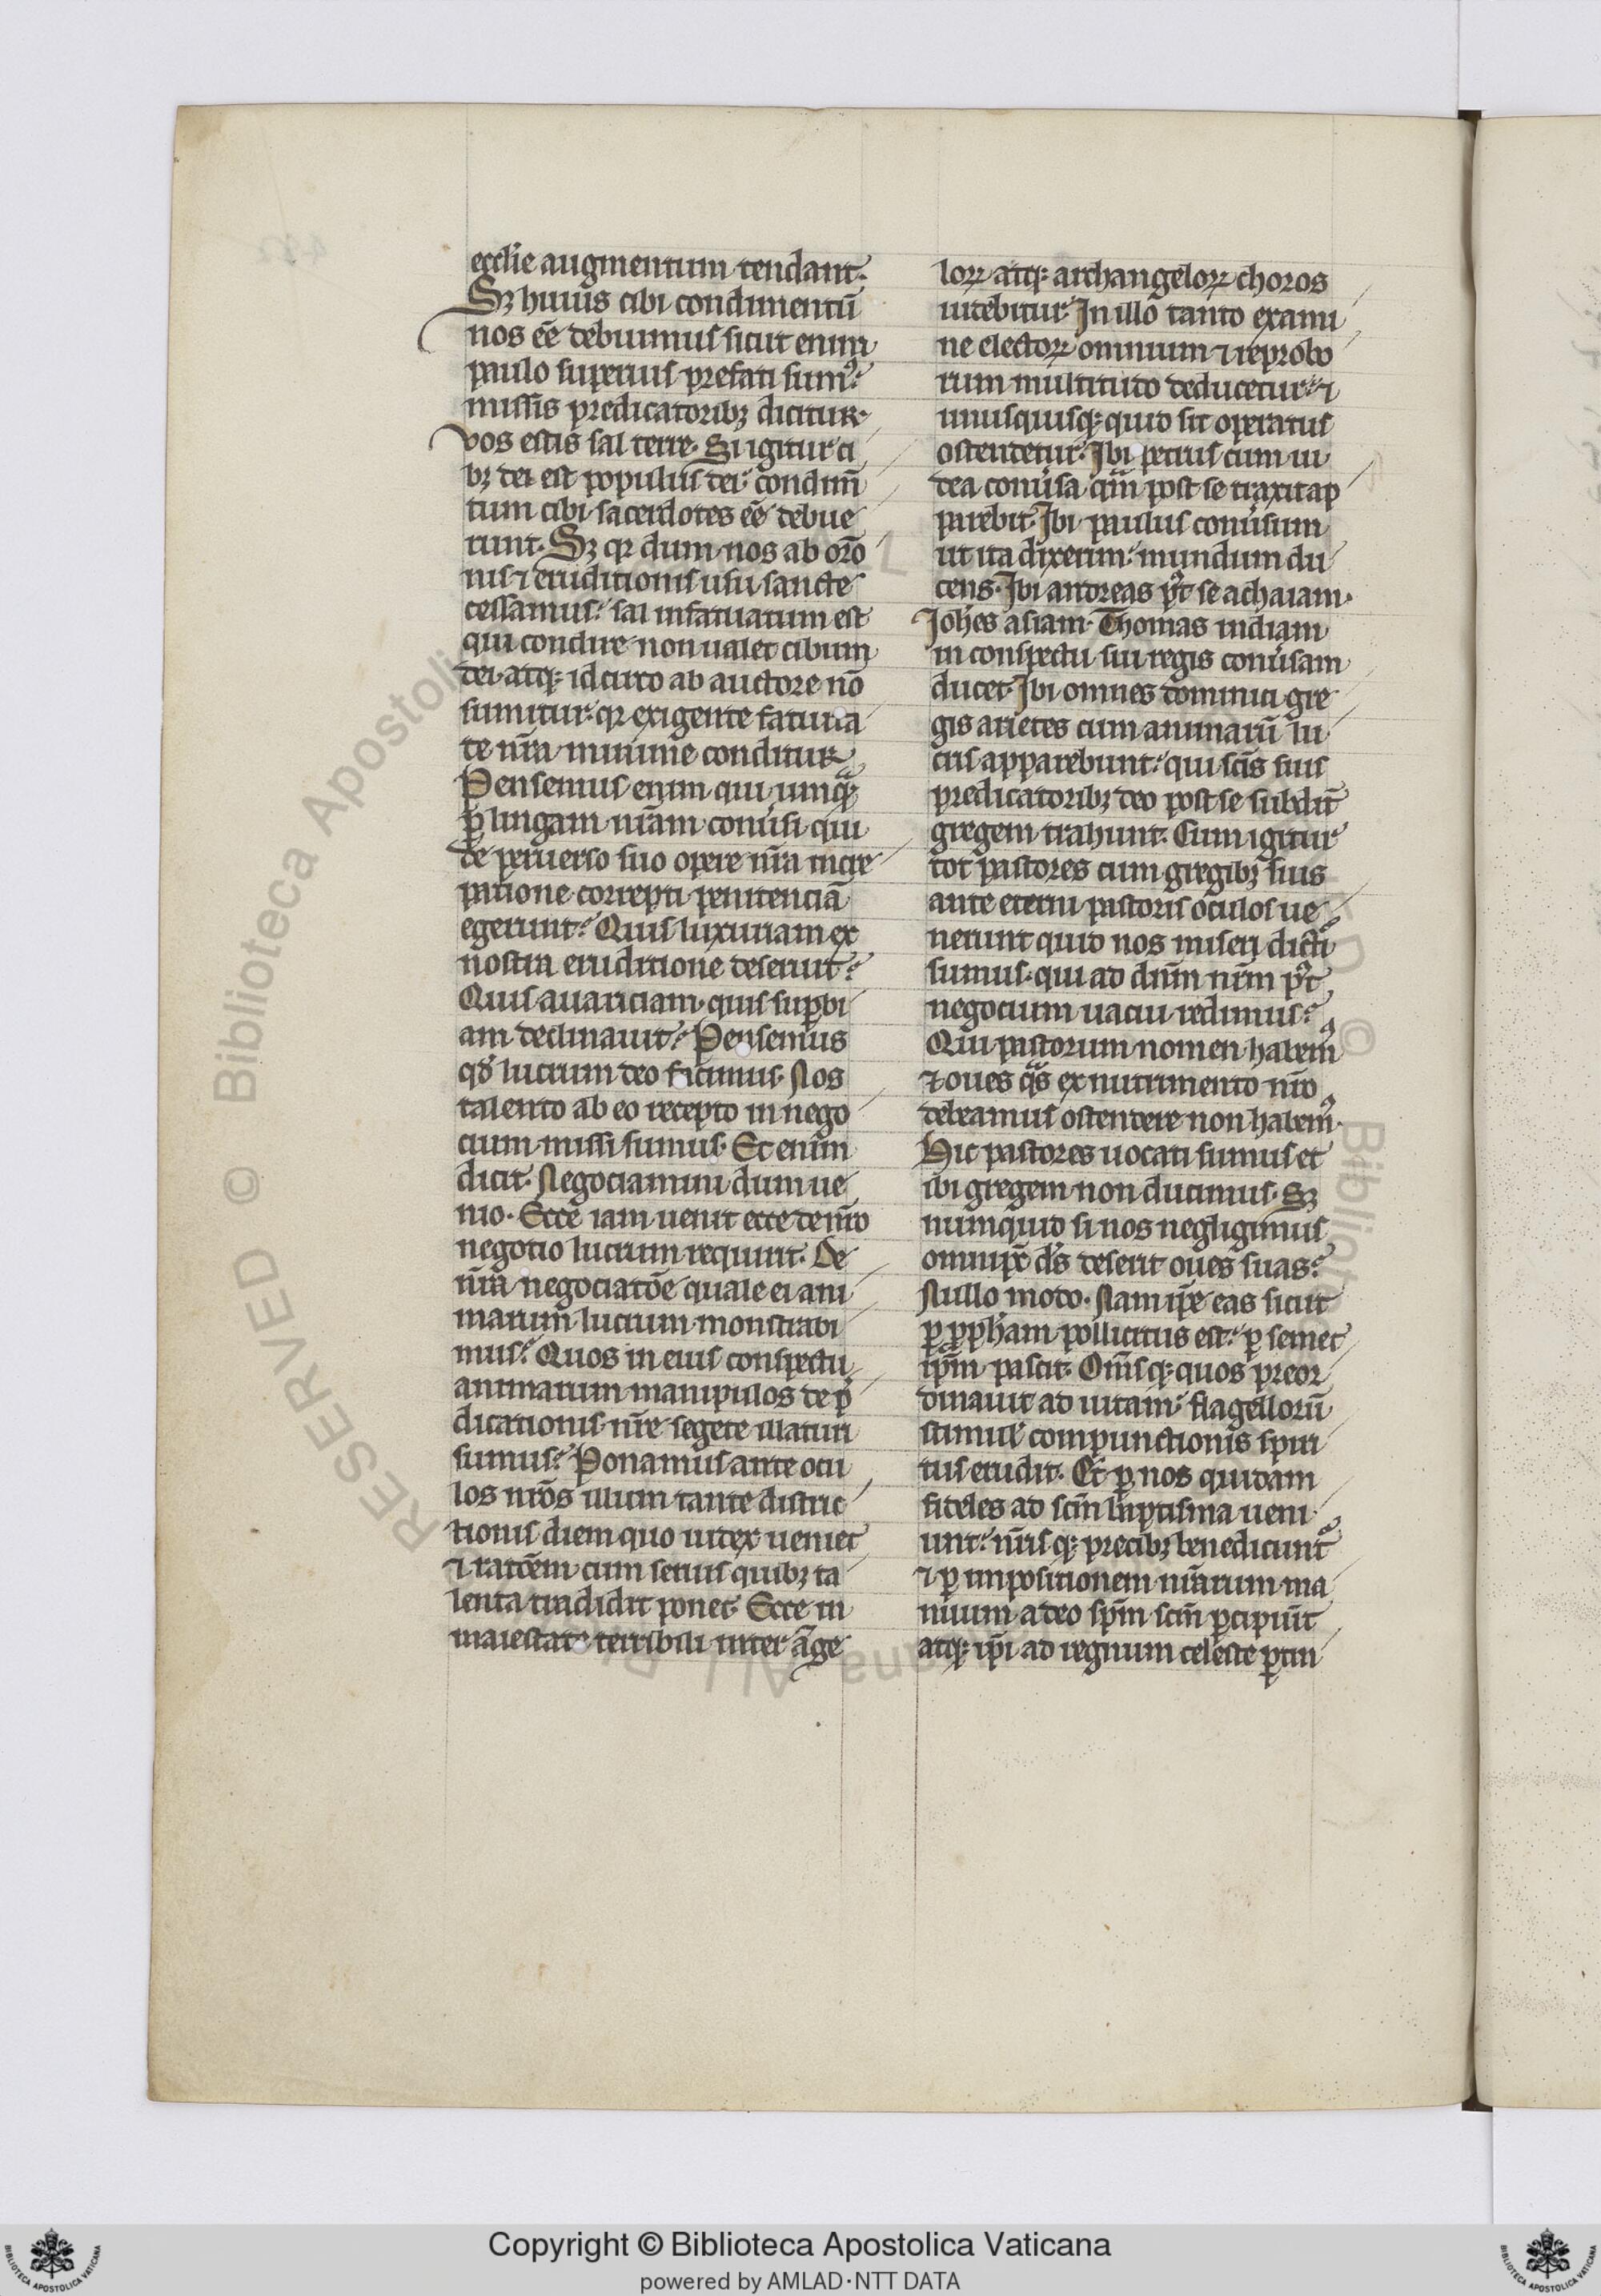 eccl'ie augmentum tendant.
Sꝫ huius cibi condimentū
nos eē debuimus sicut enim
paulo superius prefati sumꝰ.
missis predicatoribꝫ dicitur.
vos estis sal terre. Si igitur ci
bꝫ dei est populus dei condim̄
tum cibi sacerdotes eē debue
runt. Sꝫ qꝛ dum nos ab orō
nis ⁊ eruditionis usu sancte
cessamus. sal infatuatum est
qui condire non ualet cibum
dei. atqꝫ idcirco ab auctore nō
sumitur. qꝛ exigente fatuita
te nr̄a minime conditur
Pensemus enim qui umqͣꝫ
ꝑ lingam nr̄am conuˀsi qui
de peruerso suo opere nr̄a incre
patione correpti penitenciā
egerunt? Quis luxuriam ex
nostra eruditione deseruit?
Quis auariciam. quis suꝑbi
am declinauit? Pensemus
qd̄ lucrum deo facimus. Nos
talento ab eo recepto in nego
cium missi sumus. Et enim
dicit. Negociamini dum ue
nio. Ecce iam uenit ecce de nr̄o
negotio lucrum requirit. De
nr̄a negociatōe quale ei ani
marum lucrum monstrabi
mus? Quos in eius conspectu
animarum manipulos de p̄
dicationis nr̄e segete illaturi
sumus? Ponamus ante ocu
los nr̄os illum tante distric
tionis diem quo iudex ueniet
⁊ ratōem cum seruis quibꝫ ta
lenta tradidit ponet. Ecce in
maiestate terribili inter āge
loꝝ atqꝫ archangeloꝝ choros
uidebitur. In illo tanto exami
ne electoꝝ omnium ⁊ reprobo
rum multitudo deducetur. ⁊
unusquisqꝫ quid sit operatus
ostendetur. Ibi petrus cum iu
dea conuˀsa qm̄ post se traxit ap
parebit. Ibi paulus conuˀsum
ut ita dixerim mundum du
cens. Ibi andreas pꝰt se achaiam.
Joh'es asiam. Thomas indiam
in conspectu sui regis conuˀsam
ducet. Ibi omnes dominici gre
gis arietes cum animarū lu
cris apparebunt. qui scīs suis
predicatoribꝫ deo post se subdit̄
gregem trahunt. Cum igitur
tot pastores cum gregibꝫ suis
ante eterni pastoris oculos ue
nerunt quid nos miseri dicti
sumus. qui ad dn̄m nr̄m pꝰt
negocium uacui redimus?
Qui pastorum nomen habemꝰ
⁊ oues qͣs ex nutrimento nr̄o
debeamus ostendere non habemꝰ.
Hic pastores uocati sumus et
ibi gregem non ducimus. Sꝫ
numquid si nos negligimus
omnipx̄ d's deserit oues suas?
Nullo modo. Nam ip̄e eas sicut
ꝑ ꝓph'am pollicitus est. ꝑ semet
ip̄m pascit. Om̄sqꝫ quos preor
dinauit ad uitam. flagellorū
stimul' compunctionis spiri
tus erudit. Et ꝑ nos quidam
fideles ad scm̄ baptisma ueni
unt. nr̄isqꝫ precibꝫ benedicuntᷣ
⁊ ꝑ impositionem nr̄arum ma
nuum a deo sp̄m scm̄ ꝑcipiūt
atqꝫ ip̄i ad regnum celeste ꝑtin
Copyright © Biblioteca Apostolica Vaticana
powered by AMLAD·NTT DATA